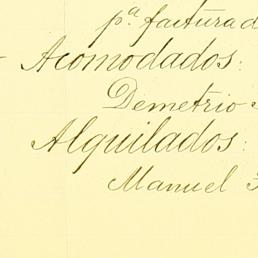 pª factura d
Acomodados:
Demetrio
Alquilados:
Manuel